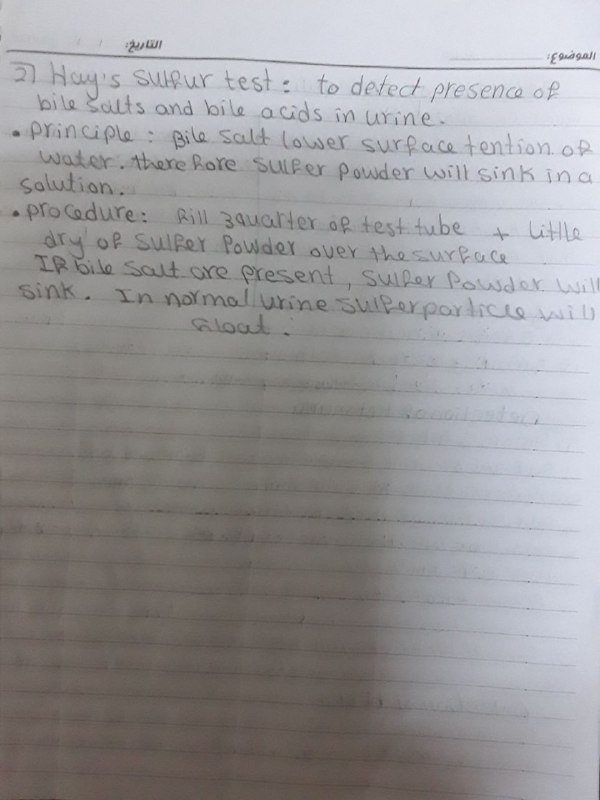 الموضوع: التاريخ: / /
2) Hay's sulfur test: to detect presence of
bile salts and bile acids in urine.
• principle: Bile salt lower surface tention of
water. therefore sulfer powder will sink in a
solution.
• procedure: fill 3quarter of test tube + little
dry of sulfer powder over the surface
If bile salt are present, sulfer powder will
sink. In normal urine sulfer particle will
float.